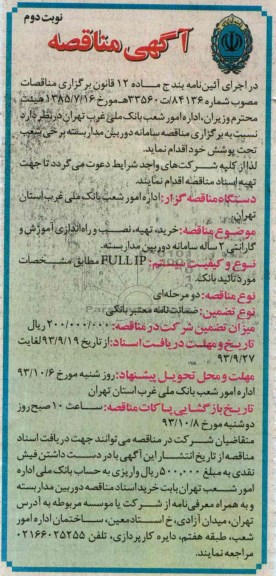 نوبت دوم
آگهی مناقصه
در اجرای آئین نامه بند ج ماده ۱۲ قانون برگزاری مناقصات
مصوب شماره ۸۴۱۳۶/ت۳۳۵۶۰هـ مورخ ۱۳۸۵/۷/۱۶ هیئت
محترم وزیران، اداره امور شعب بانک ملی غرب تهران در نظر دارد
نسبت به برگزاری مناقصه سامانه دوربین مداربسته برخی شعب
تحت پوشش خود اقدام نماید.
لذا از کلیه شرکت‌های واجد شرایط دعوت می‌گردد تا جهت
تهیه اسناد مناقصه اقدام نمایند.
دستگاه مناقصه گزار: اداره امور شعب بانک ملی غرب استان
تهران
موضوع مناقصه: خرید، تهیه، نصب و راه‌اندازی آموزش و
گارانتی ۲ ساله سامانه دوربین مداربسته.
نوع و کیفیت سیستم: FULL IP مطابق مشخصات
مورد تائید بانک.
نوع مناقصه: دو مرحله‌ای
نوع تضمین: ضمانت‌نامه معتبر بانکی
میزان تضمین شرکت در مناقصه: ۲۰۰/۰۰۰/۰۰۰ ریال
تاریخ و مهلت دریافت اسناد: از تاریخ ۹۳/۹/۱۹ لغایت
۹۳/۹/۲۷
مهلت و محل تحویل پیشنهاد: روز شنبه مورخ ۹۳/۱۰/۶
اداره امور شعب بانک ملی غرب استان تهران
تاریخ بازگشایی پاکات مناقصه: ساعت ۱۰ صبح روز
دوشنبه مورخ ۹۳/۱۰/۸
متقاضیان شرکت در مناقصه می‌توانند جهت دریافت اسناد
مناقصه از تاریخ انتشار این آگهی با در دست داشتن فیش
نقدی به مبلغ ۵۰۰/۰۰۰ ریال واریزی به حساب بانک ملی اداره
امور شعب تهران بابت خرید اسناد مناقصه دوربین مداربسته
و به همراه معرفی‌نامه از شرکت یا موسسه مربوطه به آدرس
تهران، میدان آزادی، خ استاد معین، ساختمان اداره امور
شعب، طبقه هفتم، دایره کارپردازی، تلفن ۰۲۱۶۶۰۲۵۲۵۵
مراجعه نمایند.